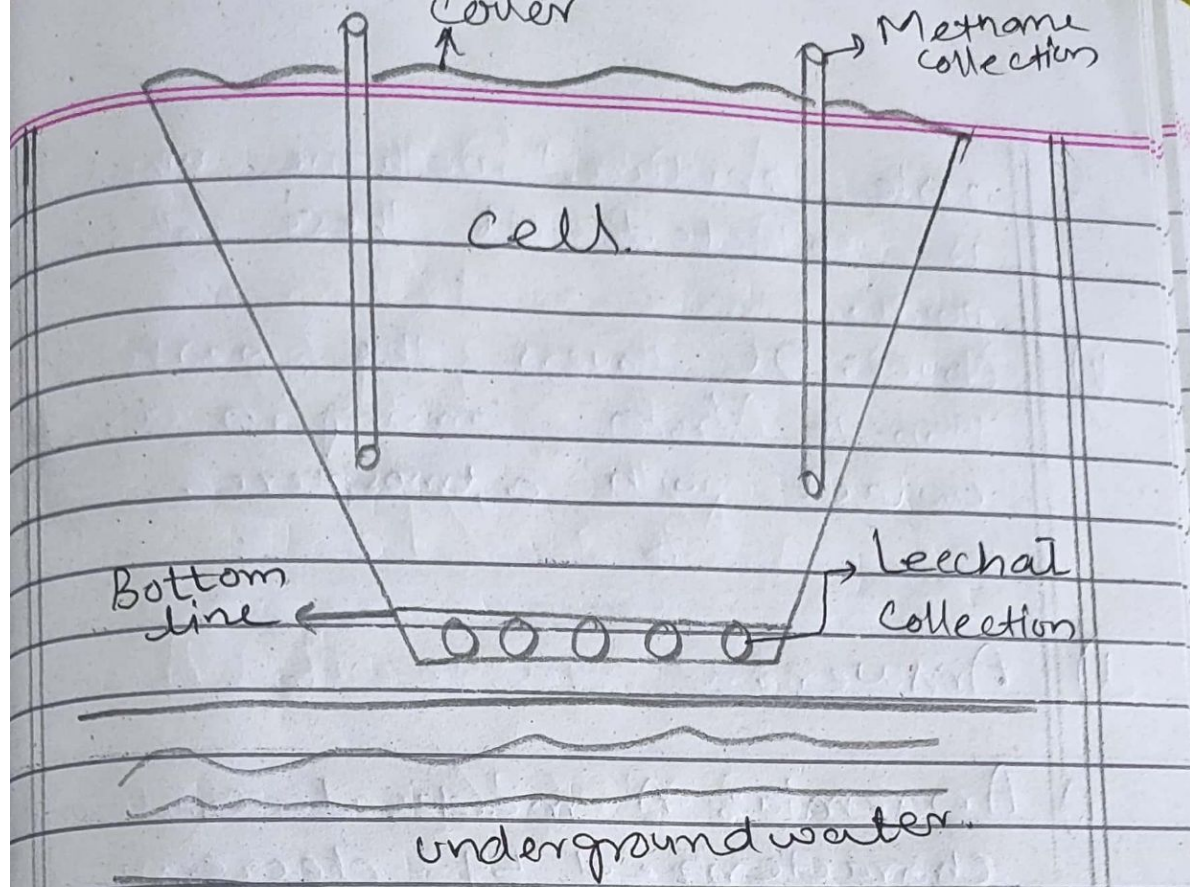 Cover
Methane
Collection
Cell.
Bottom
Line
Leechat
Collection
underground water.